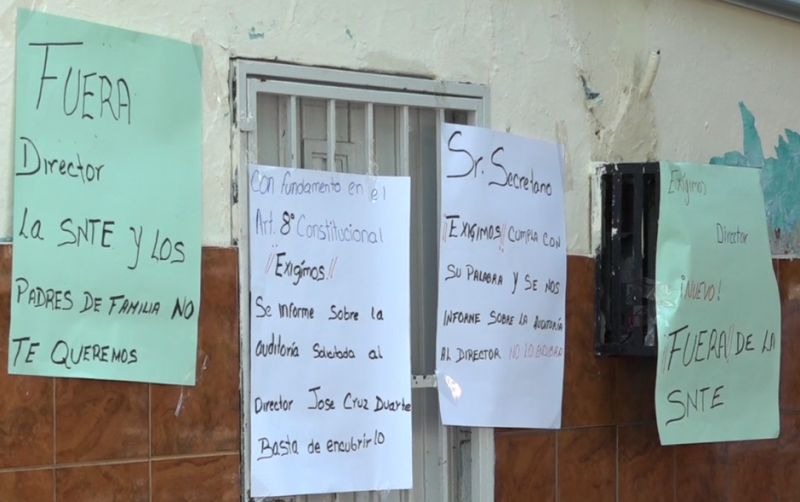 FUERA
Director
La SNTE y LOS
PADRES DE FAMILIA NO
TE QUEREMOS
Con fundamento en el
Art. 8º Constitucional
"Exigimos"
Se informe sobre la
auditoría Solicitada al
Director Jose Cruz Duarte
Basta de encubrirlo
Sr. Secretario
"EXIGIMOS" CUMPLA CON
SU PALABRA Y SE NOS
INFORME SOBRE LA AUDITORÍA
AL DIRECTOR NO LO ENCUBRA
Exigimos
Director
¡NUEVO!
"FUERA" DE LA
SNTE